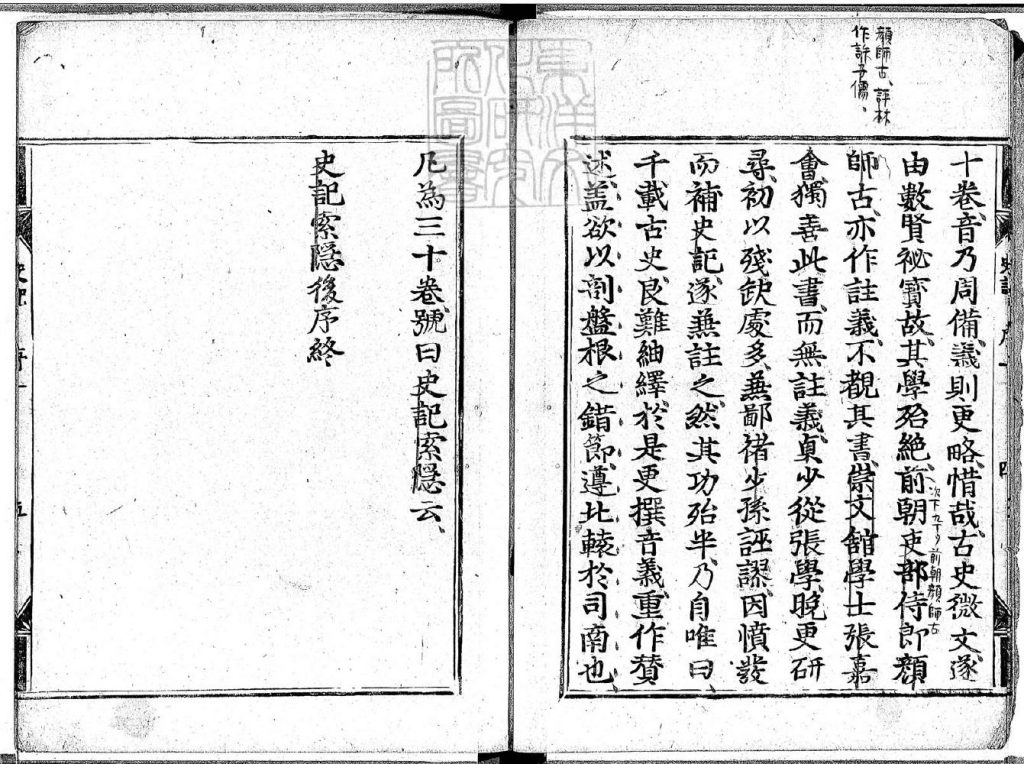 顔師古、評林
作許子儒、
十卷音乃周備義則更略惜哉古史微文遂
由數賢祕寳故其學殆絶前朝吏部侍郎顔
前朝顔師古
師古亦作註義不覩其書崇文館學士張嘉
會獨善此書而無註義貞少從張學晩更研
尋初以殘缺處多兼鄙褚少孫誣謬因憤發
而補史記遂兼註之然其功殆半乃自唯曰
千載古史良難紬繹於是更撰音義重作賛
述盖欲以剖盤根之錯節遵北轅於司南也
凡為三十卷號曰史記索隠云
史記索隠後序終
史記 序
四
史記 序
五